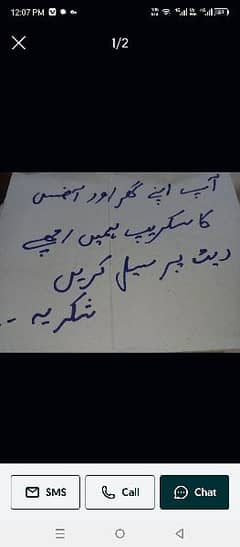 12:07 PM
1/2
آپ اپنے گھر اور آفس
کا سکریپ ہمیں اچھے
ریٹ پر سیل کریں
شکریہ ۔۔
SMS
Call
Chat